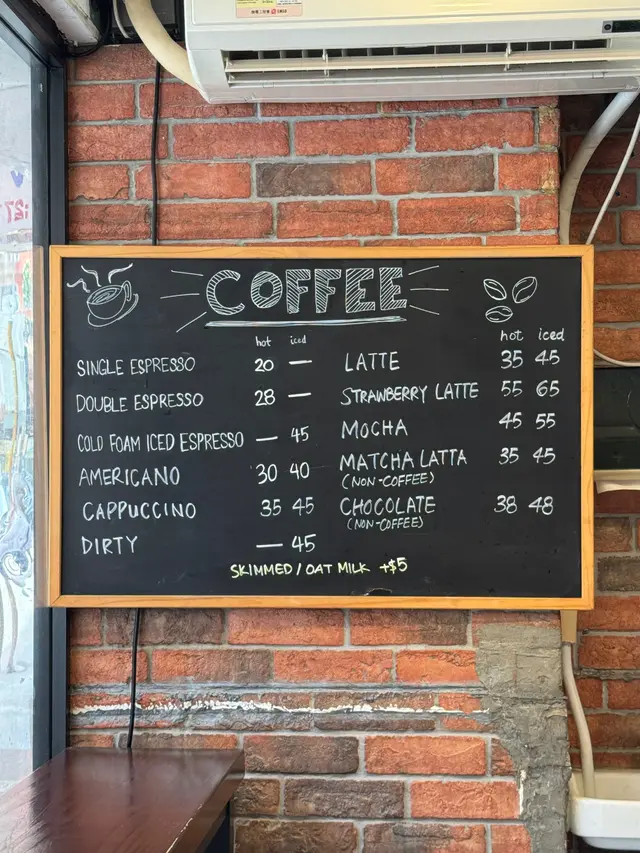 COFFEE
hot iced
SINGLE ESPRESSO 20 —
DOUBLE ESPRESSO 28 —
COLD FOAM ICED ESPRESSO — 45
AMERICANO 30 40
CAPPUCCINO 35 45
DIRTY — 45
hot iced
LATTE 35 45
STRAWBERRY LATTE 55 65
MOCHA 45 55
MATCHA LATTA 35 45
(NON-COFFEE)
CHOCOLATE 38 48
(NON-COFFEE)
SKIMMED / OAT MILK +$5